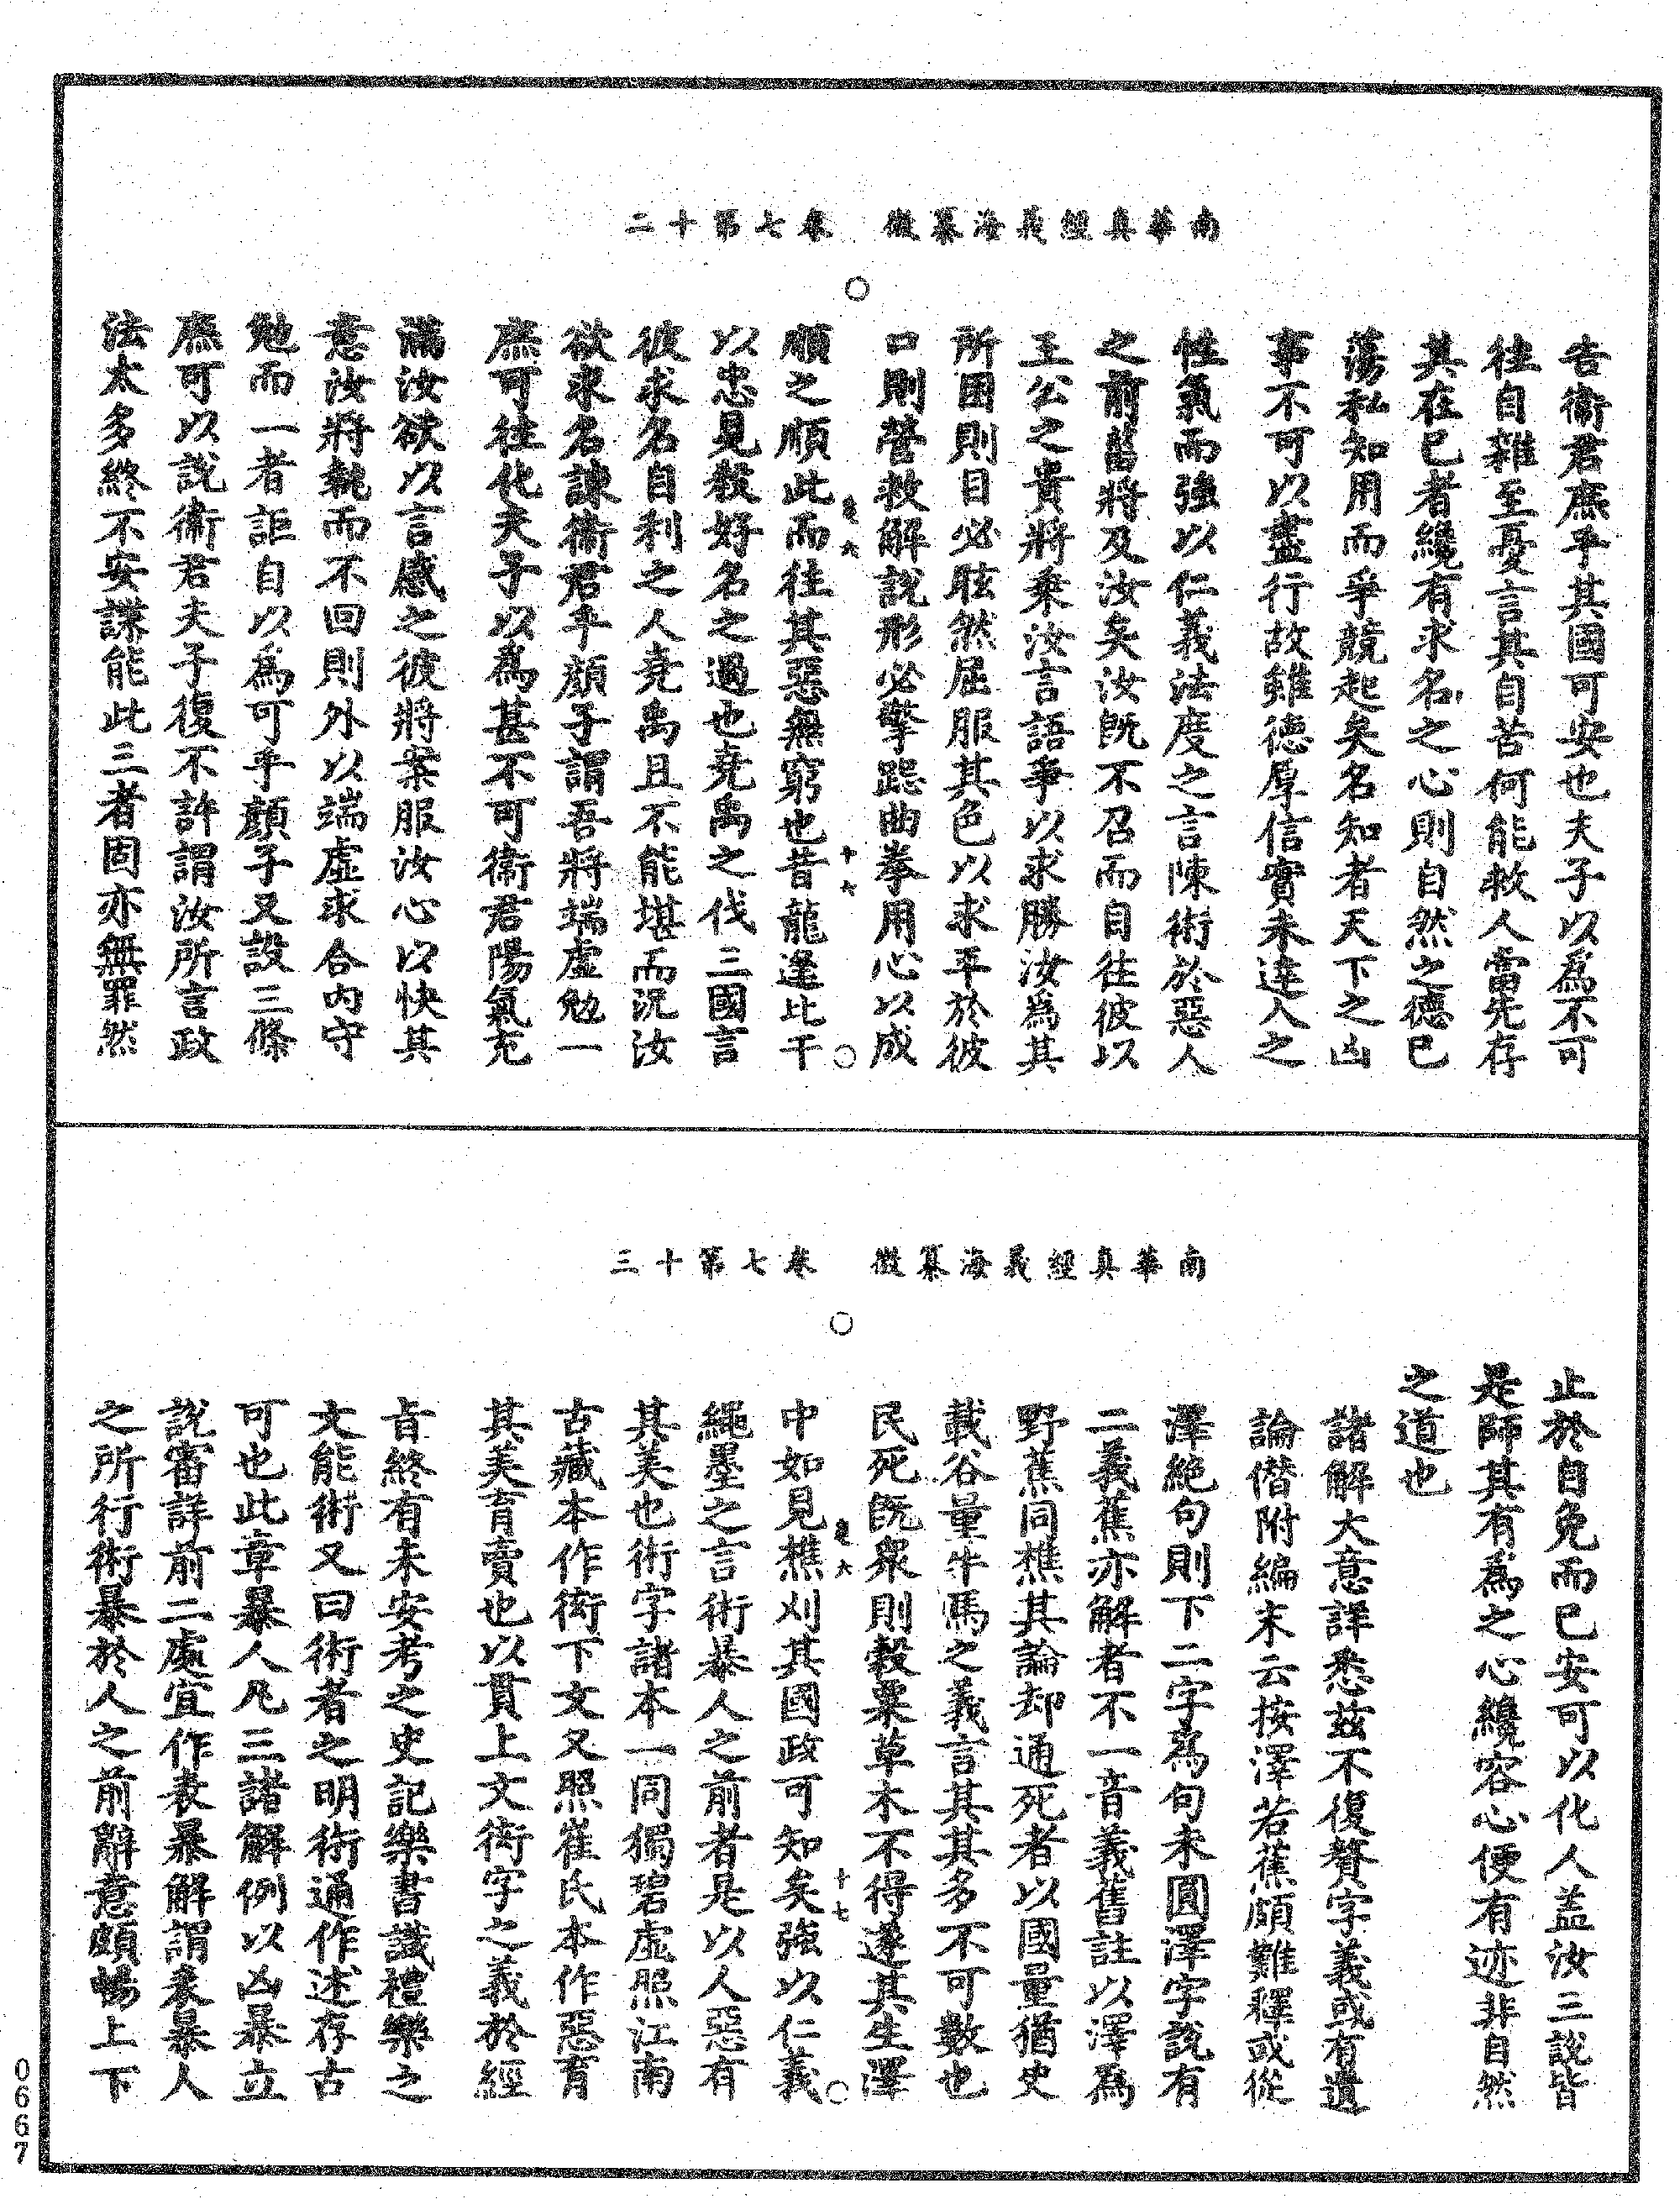 南華真經義海纂微　卷七第十二
告衞君庶乎其國可安也夫子以為不可
往自雜至憂言其自苦何能救人當先存
其在已者纔有求名之心則自然之德已
蕩私知用而爭競起矣名知者天下之凶
事不可以盡行故雖德厚信實未達人之
性氣而強以仁義法度之言陳術於惡人
之前菑將及汝矣汝旣不召而自往彼以
王公之貴將乗汝言語爭以求勝汝為其
所困則目必眩然屈服其色以求平於彼
口則營救解說形必擎跽曲拳用心以成
順之順此而往其惡無窮也昔龍逢比干
以忠見殺好名之過也堯禹之伐三國言
彼求名自利之人堯禹且不能堪而況汝
欲求名諫衞君乎顏子謂吾將端虛勉一
庶可往化夫子以為甚不可衞君陽氣充
滿汝欲以言感之彼將案服汝心以快其
意汝將執而不回則外以端虛求合內守
勉而一者詎自以為可乎顏子又設三條
庶可以說衞君夫子復不許謂汝所言政
法太多終不安諜能此三者固亦無罪然
南華真經義海纂微　卷七第十三
止於自免而已安可以化人盖汝三說皆
是師其有為之心纔容心便有迹非自然
之道也
諸解大意詳悉兹不復贅字義或有遺
論僭附編末云按澤若蕉頗難釋或從
澤絕句則下二字為句未圓澤字說有
二義蕉亦解者不一音義舊註以澤為
野蕉同樵其論却通死者以國量猶史
載谷量牛馬之義言其其多不可數也
民死旣衆則穀粟草木不得遂其生澤
中如見樵刈其國政可知矣強以仁義
繩墨之言術暴人之前者是以人惡有
其美也術字諸本一同獨碧虛照江南
古藏本作衒下文又照崔氏本作惡育
其美育賣也以貫上文衒字之義於經
旨終有未安考之史記樂書識禮樂之
文能術又曰術者之明術通作述存古
可也此章暴人凡三諸解例以凶暴立
說審詳前二處宜作表暴解謂表暴人
之所行術暴於人之前辭意頗暢上下
0667